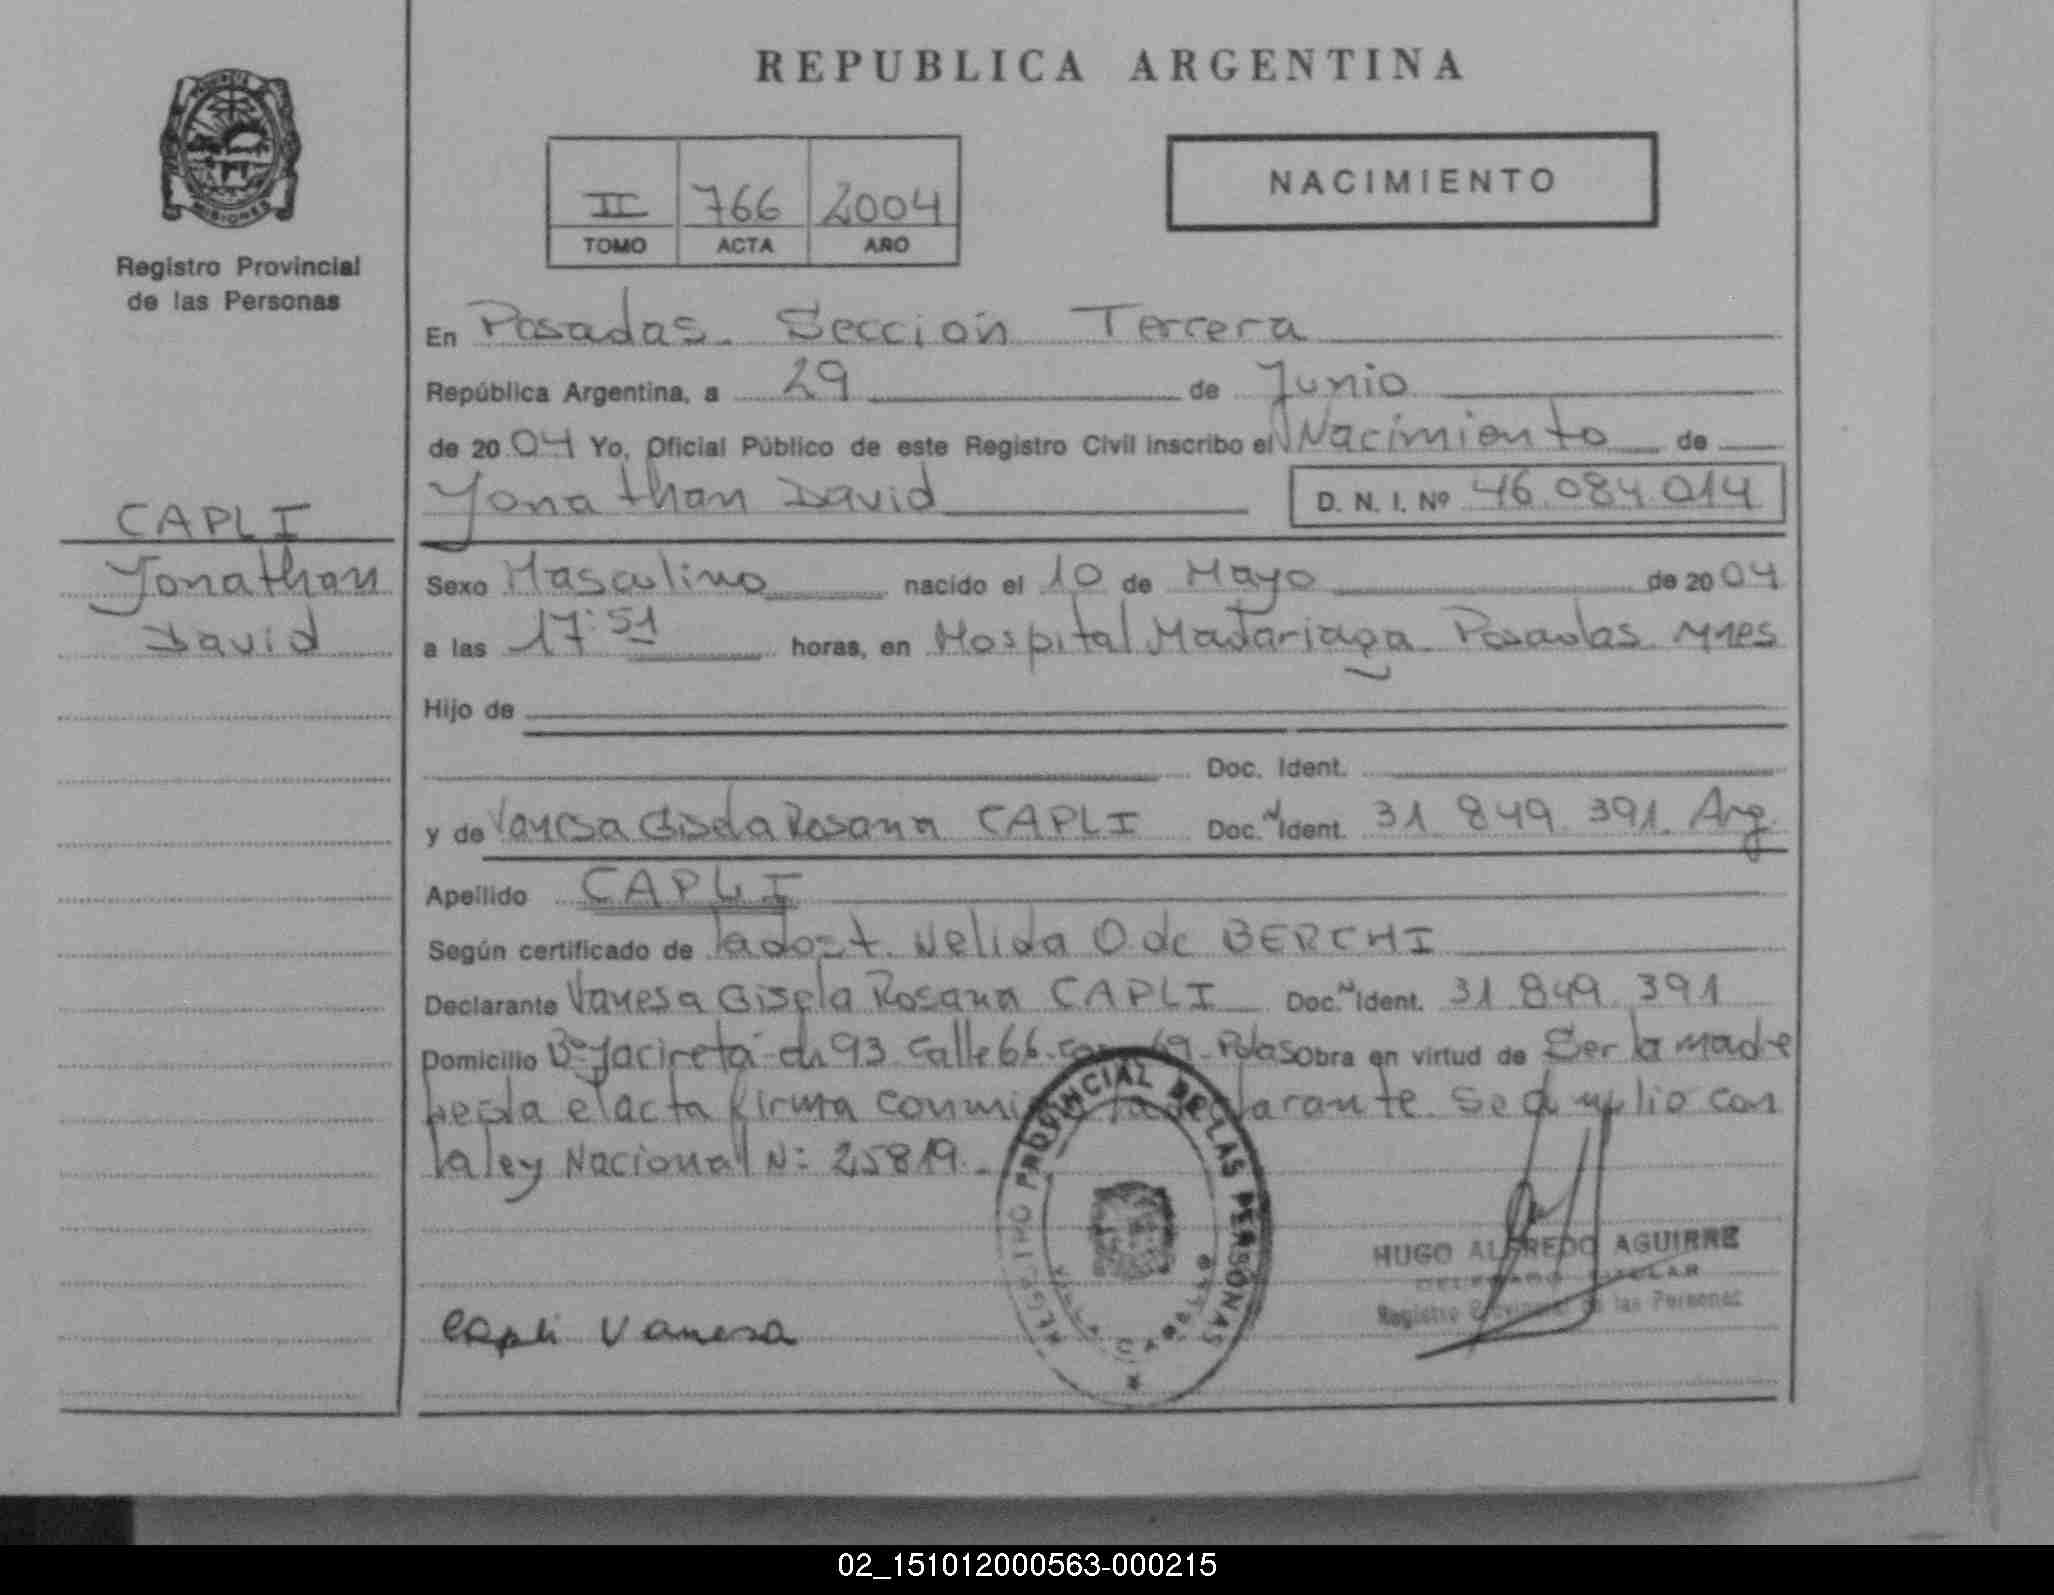 REPUBLICA ARGENTINA
MISIONES
Registro Provincial
de las Personas
II 766 2004
TOMO ACTA AÑO
NACIMIENTO
En Posadas. Sección Tercera
República Argentina, a 29 de Junio
de 2004 Yo, Oficial Público de este Registro Civil inscribo el Nacimiento de
Jonathan David D. N. I. Nº 46.084.014
CAPLI
Jonathan
David
Sexo Masculino nacido el 10 de Mayo de 2004
a las 17:51 horas, en Hospital Madariaga. Posadas Mnes
Hijo de
Doc. Ident.
y de Vanesa Gisela Rosana CAPLI Doc. Ident. 31.849.391. Arg.
Apellido CAPLI
Según certificado de la obst. Nelida O de BERCHI
Declarante Vanesa Gisela Rosana CAPLI Doc. Ident. 31.849.391
Domicilio Bº Yacireta ch 93 calle 66. 69. Pdas obra en virtud de Ser la madre
leida el acta firma conmigo la declarante. Se cumplio con
la ley Nacional Nº: 25819.
REGISTRO PROVINCIAL DE LAS PERSONAS
HUGO ALFREDO AGUIRRE
DELEGADO TITULAR
Registro Provincial de las Personas
Capli Vanesa
02_151012000563-000215